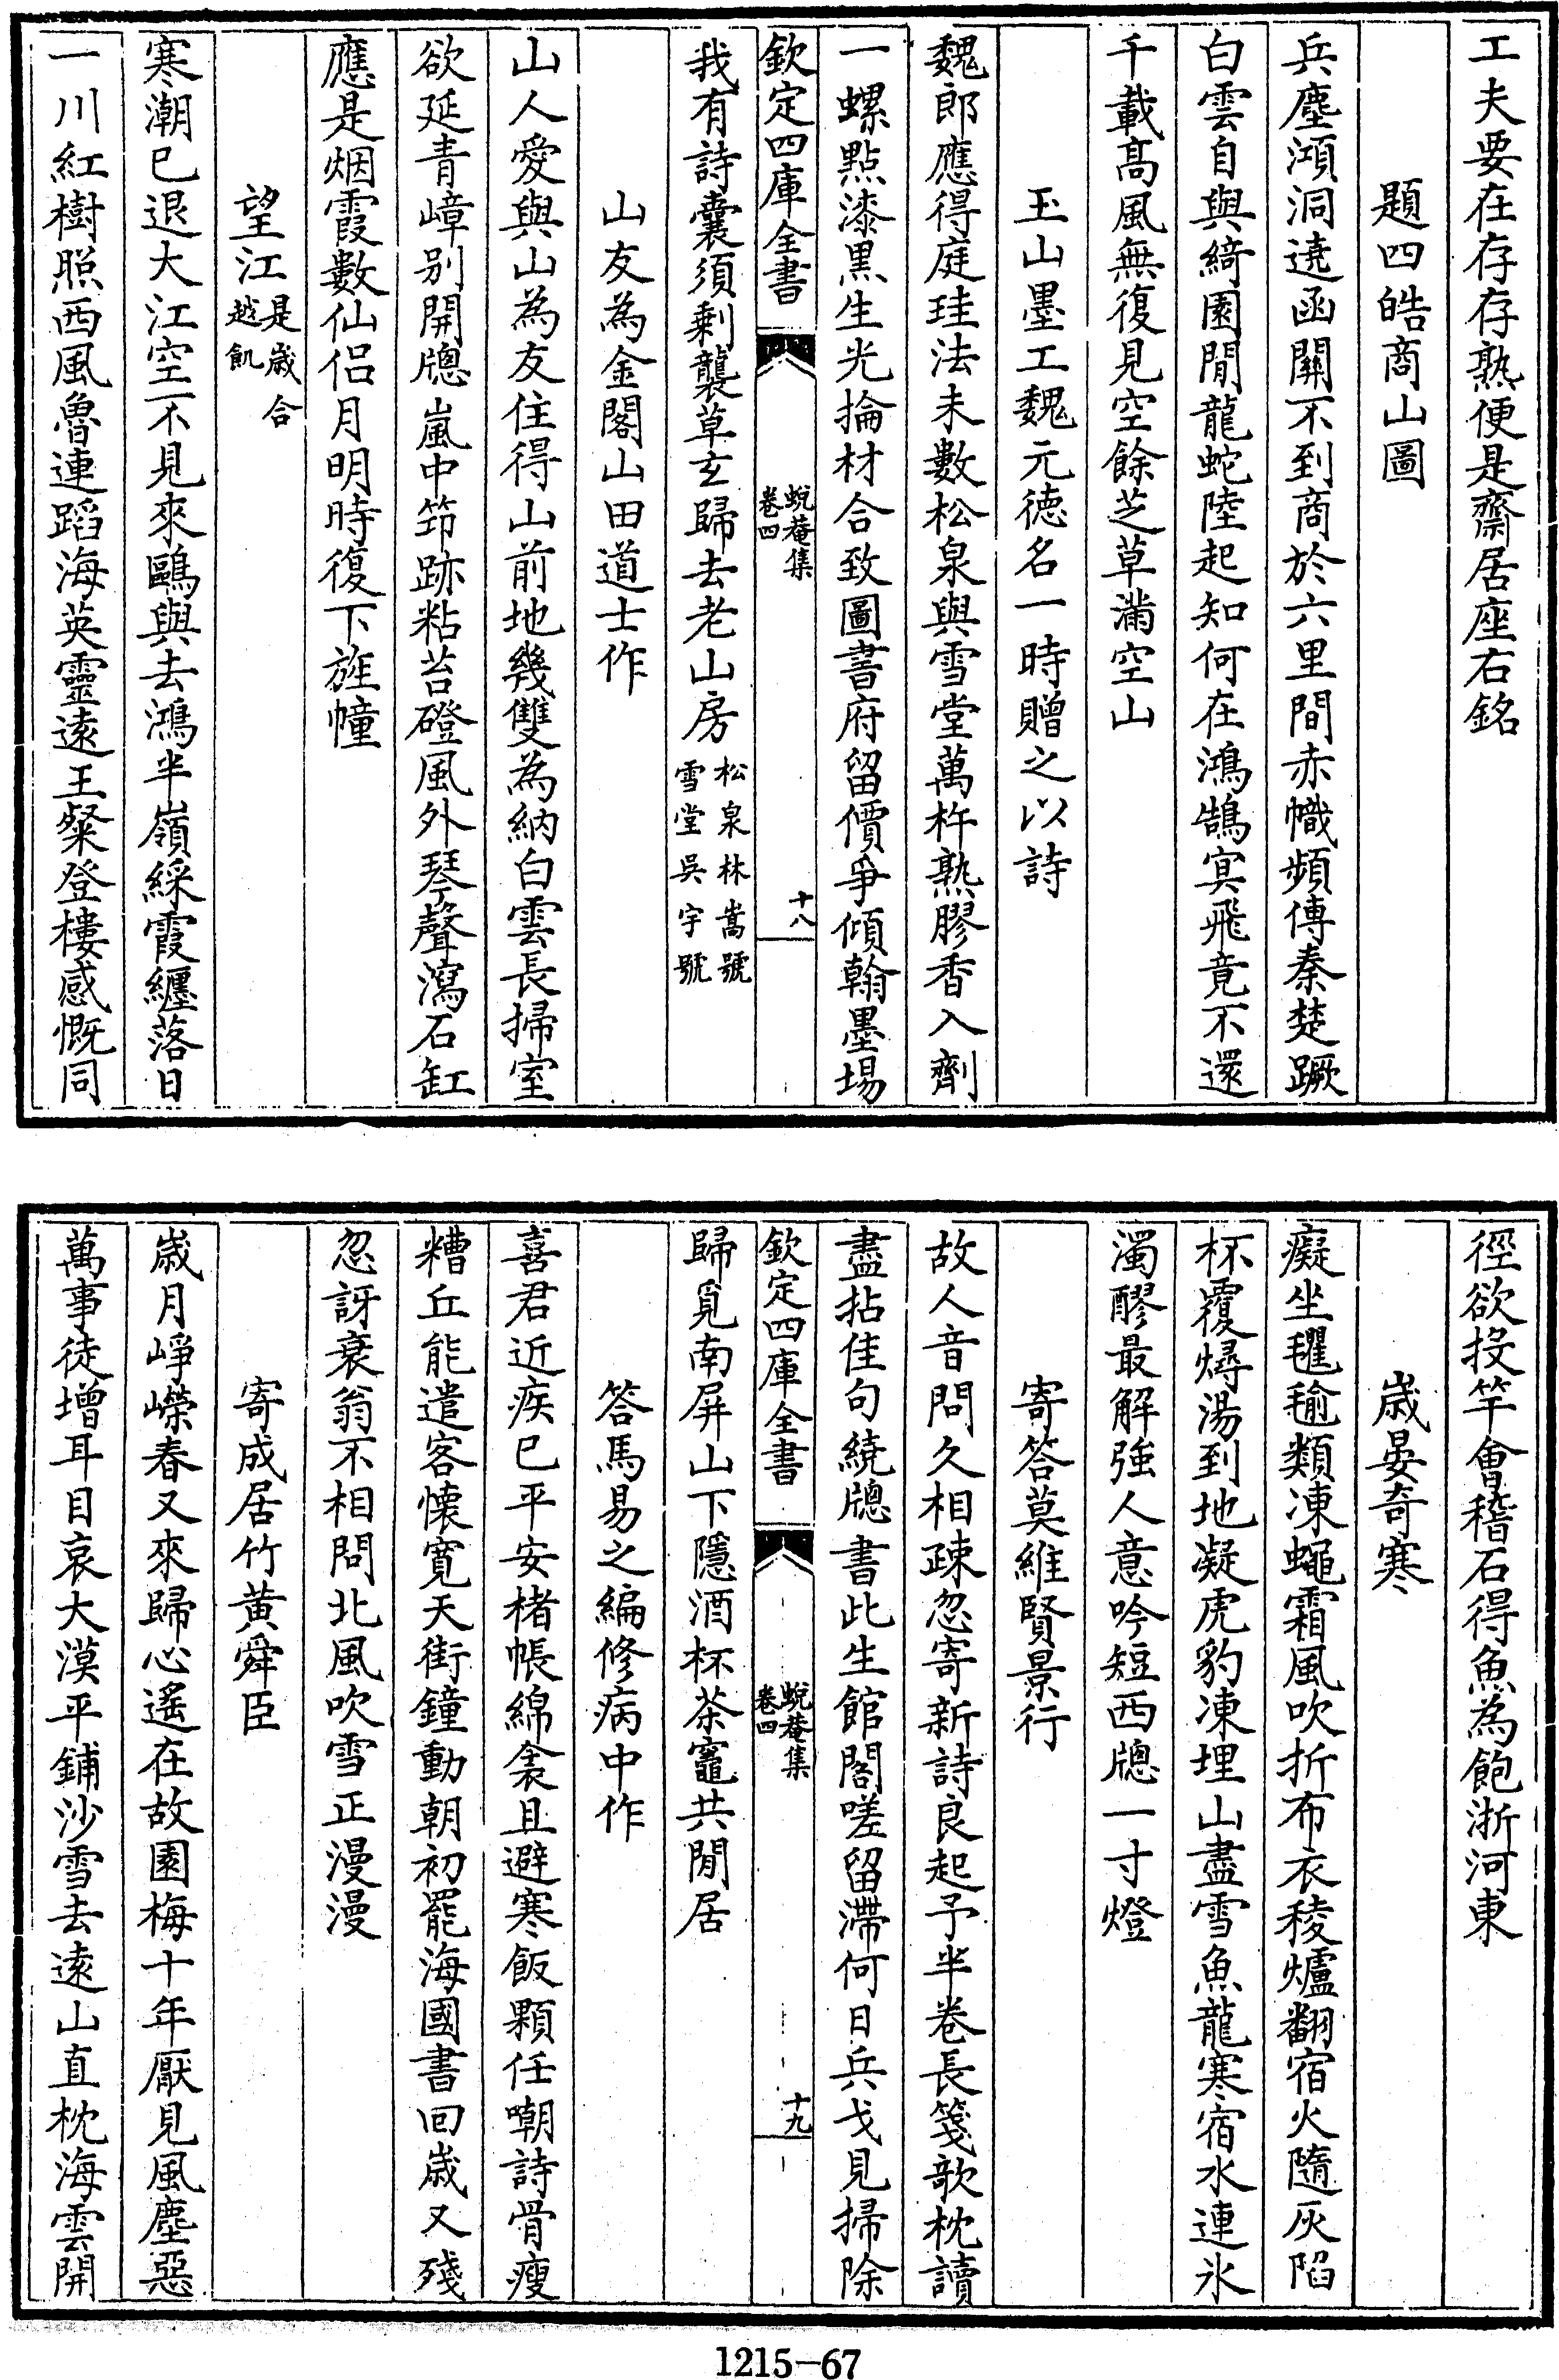 工夫要在存存熟便是齋居座右銘
題四皓商山圖
兵塵澒洞遶函關不到商於六里間赤幟頻傳秦楚蹶
白雲自與綺園閒龍蛇陸起知何在鴻鵠冥飛竟不還
千載髙風無復見空餘芝草滿空山
玉山墨工魏元徳名一時贈之以詩
魏郎應得庭珪法未數松泉與雪堂萬杵熟膠香入劑
一螺點漆黒生光掄材合致圖書府留價爭傾翰墨場
欽定四庫全書
蛻菴集
卷四
十八
我有詩囊須剰襲草玄歸去老山房松泉林嵩號
雪堂吳宇號
山友為金閣山田道士作
山人愛與山為友住得山前地幾雙為納白雲長掃室
欲延青嶂别開牕嵐中笻跡粘苔磴風外琴聲瀉石缸
應是烟霞數仙侣月明時復下旌幢
望江是歳合
越飢
寒潮已退大江空不見來鷗與去鴻半嶺綵霞纒落日
一川紅樹照西風魯連蹈海英靈逺王粲登樓感慨同
徑欲投竿會稽石得魚為飽浙河東
歳晏奇寒
癡坐氍毹類凍蠅霜風吹折布衣稜爐翻宿火隨灰陷
杯覆燖湯到地凝虎豹凍埋山盡雪魚龍寒宿水連氷
濁醪最解強人意吟短西牕一寸燈
寄答莫維賢景行
故人音問久相疎忽寄新詩良起予半卷長箋歌枕讀
盡拈佳句繞牕書此生館閣嗟留滯何日兵戈見掃除
欽定四庫全書
蛻菴集
卷四
十九
歸覓南屏山下隱酒杯茶竈共閒居
答馬易之編修病中作
喜君近疾已平安楮帳綿衾且避寒飯顆任嘲詩骨瘦
糟丘能遣客懐寛天街鐘動朝初罷海國書回歳又殘
忽訝衰翁不相問北風吹雪正漫漫
寄成居竹黄舜臣
歳月崢嶸春又來歸心遙在故園梅十年厭見風塵惡
萬事徒增耳目哀大漠平鋪沙雪去逺山直枕海雲開
1215-67